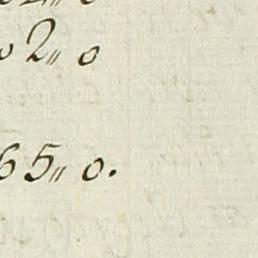 02〃 0
65〃 0.